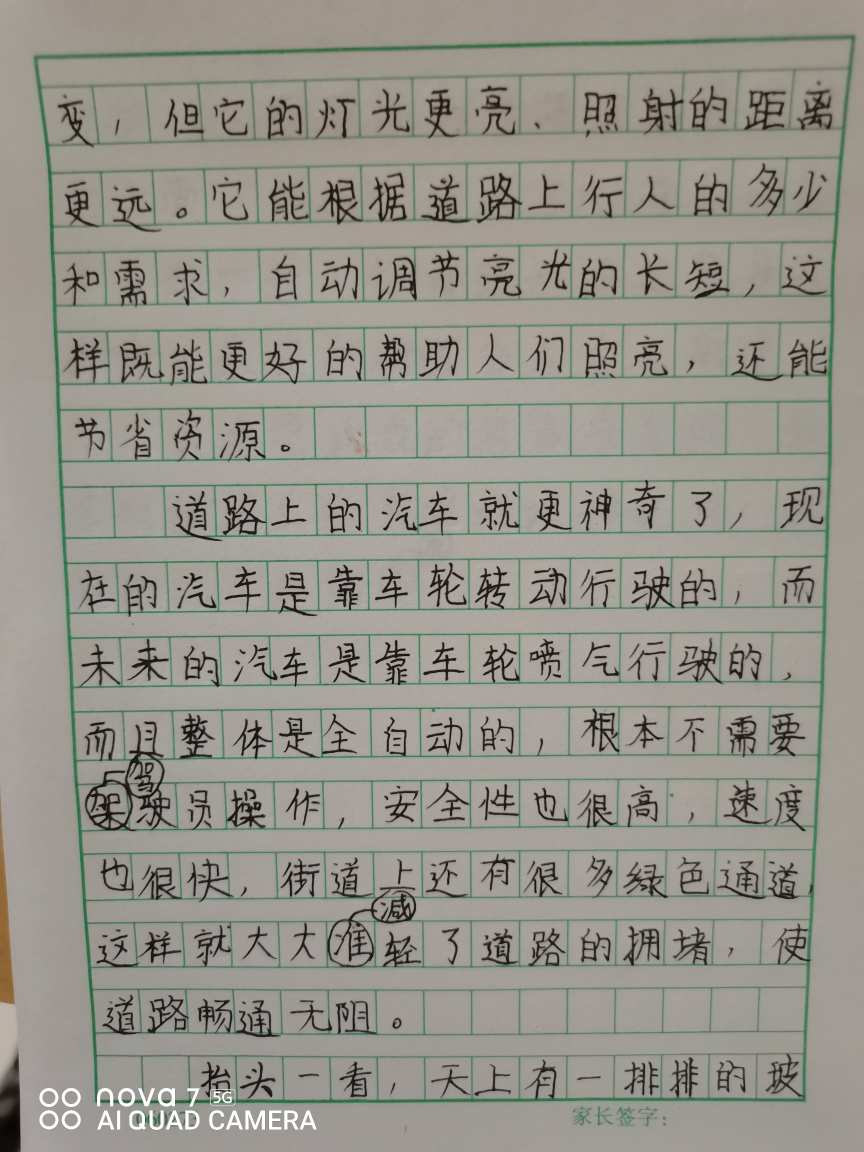 变，但它的灯光更亮、照射的距离
更远。它能根据道路上行人的多少
和需求，自动调节亮光的长短，这
样既能更好的帮助人们照亮，还能
节省资源。
道路上的汽车就更神奇了，现
在的汽车是靠车轮转动行驶的，而
未来的汽车是靠车轮喷气行驶的，
而且整体是全自动的，根本不需要
驾
架驶员操作，安全性也很高，速度
也很快，街道上还有很多绿色通道，
减
这样就大大准轻了道路的拥堵，使
道路畅通无阻。
抬头一看，天上有一排排的玻
家长签字：
nova 7 5G
AI QUAD CAMERA